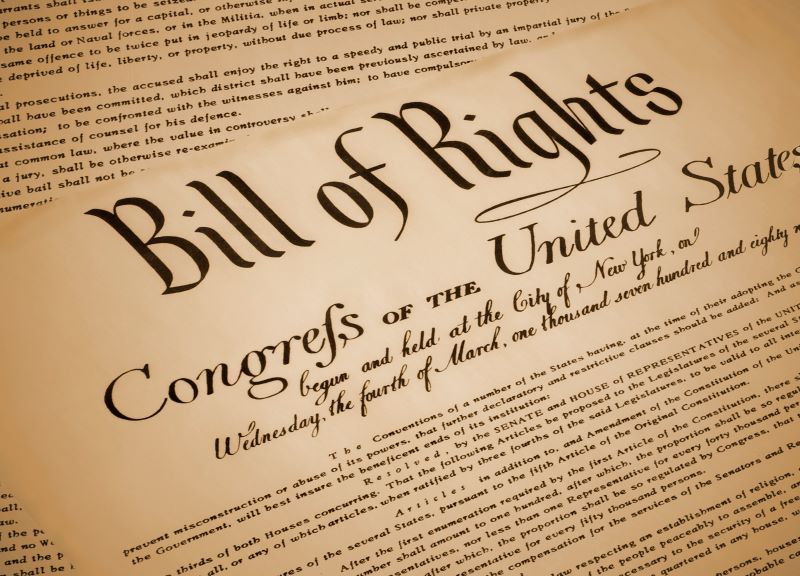 rrants shall
persons or things to be seized.
be held to answer for a capital, or otherwise
the land or Naval forces, or in the Militia, when in actual
same offence to be twice put in jeopardy of life or limb; nor shall be
deprived of life, liberty, or property, without due process of law; nor shall private property
al prosecutions, the accused shall enjoy the right to a speedy and public trial by an impartial jury of the
hall have been committed, which district shall have been previously ascertained by law, and
sation; to be confronted with the witnesses against him; to have compulsory
ssistance of counsel for his defence.
at common law, where the value in controversy shall
a jury, shall be otherwise re-exami
ive bail shall not be
numerati
Bill of Rights
Congreſs OF THE United States
begun and held at the City of New York, on
Wednesday, the fourth of March, one thousand seven hundred and eighty n
The Conventions of a number of the States having, at the time of their adopting the C
prevent misconstruction or abuse of its powers, that further declaratory and restrictive clauses should be added: And as
the Government, will best insure the beneficent ends of its institution:
Resolved, by the SENATE and HOUSE of REPRESENTATIVES of the UNIT
thirds of both Houses concurring, That the following Articles be proposed to the Legislatures of the several S
all, or any of which articles, when ratified by three fourths of the said Legislatures, to be valid to all inten
Articles in addition to, and Amendment of the Constitution of the Unit
res of the several States, pursuant to the fifth Article of the Original Constitution.
After the first enumeration required by the first Article of the Constitution, there s
number shall amount to one hundred, after which, the proportion shall be so regu
sentatives, nor less than one Representative for every forty thousand per
after which, the proportion shall be so regulated by Congress, that
esentative for every fifty thousand persons.
the compensation for the services of the Senators and Re
law respecting an establishment of religion,
of the people peaceably to assemble, an
cessary to the security of a free
quartered in any house, w
persons, houses
able cau
all,
aw.
of the p
and no W
and the p
shall be